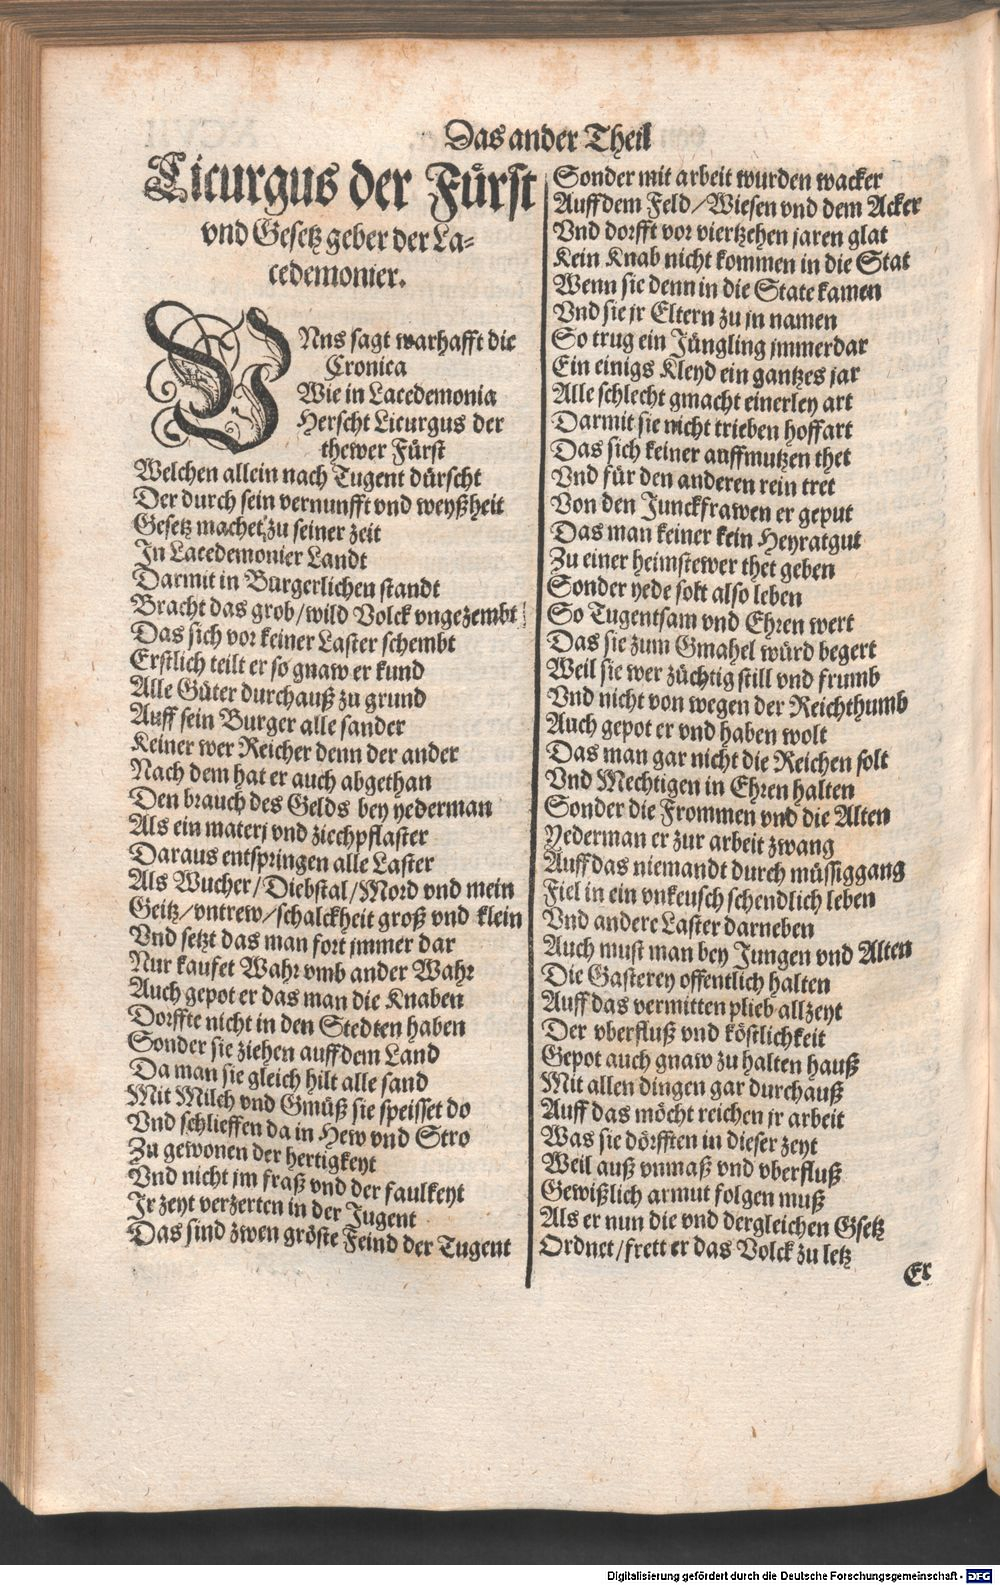 Das ander Theil
Licurgus der Fürst
vnd Gesetz geber der La-
cedemonier.
VNns sagt warhafft die
Cronica
Wie in Lacedemonia
Herscht Licurgus der
thewer Fürst
Welchen allein nach Tugent dürscht
Der durch sein vernunfft vnd weyßheit
Gesetz machet zu seiner zeit
In Lacedemonier Landt
Darmit in Burgerlichen standt
Bracht das grob/wild Volck vngezembt
Das sich vor keiner Laster schembt
Erstlich teilt er so gnaw er kund
Alle Güter durchauß zu grund
Auff sein Burger alle sander
Keiner wer Reicher denn der ander
Nach dem hat er auch abgethan
Den brauch des Gelds bey yederman
Als ein materj vnd ziechpflaster
Daraus entspringen alle Laster
Als Wucher/Diebstal/Mord vnd mein
Geitz/vntrew/schalckheit groß vnd klein
Vnd setzt das man fort jmmer dar
Nur kaufet Wahr vmb ander Wahr
Auch gepot er das man die Knaben
Dorffte nicht in den Stedten haben
Sonder sie ziehen auff dem Land
Da man sie gleich hilt alle sand
Mit Milch vnd Gmüß sie speisset do
Vnd schlieffen da in Hew vnd Stro
Zu gewonen der hertigkeyt
Vnd nicht jm fraß vnd der faulkeyt
Jr zeyt verzerten in der Jugent
Das sind zwen gröste Feind der Tugent
Sonder mit arbeit wurden wacker
Auff dem Feld/Wiesen vnd dem Acker
Vnd dorfft vor viertzehen jaren glat
Kein Knab nicht kommen in die Stat
Wenn sie denn in die State kamen
Vnd sie jr Eltern zu jn namen
So trug ein Jüngling jmmerdar
Ein einigs Kleyd ein gantzes jar
Alle schlecht gmacht einerley art
Darmit sie nicht trieben hoffart
Das sich keiner auffmutzen thet
Vnd für den anderen rein tret
Von den Junckfrawen er geput
Das man keiner kein Heyratgut
Zu einer heimstewer thet geben
Sonder yede solt also leben
So Tugentsam vnd Ehren wert
Das sie zum Gmahel würd begert
Weil sie wer züchtig still vnd frumb
Vnd nicht von wegen der Reichthumb
Auch gepot er vnd haben wolt
Das man gar nicht die Reichen solt
Vnd Mechtigen in Ehren halten
Sonder die Frommen vnd die Alten
Yederman er zur arbeit zwang
Auff das niemandt durch müssiggang
Fiel in ein vnkeusch schendlich leben
Vnd andere Laster darneben
Auch must man bey Jungen vnd Alten
Die Gasterey offentlich halten
Auff das vermitten plieb allzeyt
Der vberfluß vnd köstlichkeit
Gepot auch gnaw zu halten hauß
Mit allen dingen gar durchauß
Auff das möcht reichen jr arbeit
Was sie dörfften in dieser zeyt
Weil auß vnmaß vnd vberfluß
Gewißlich armut folgen muß
Als er nun die vnd dergleichen Gsetz
Ordnet/frett er das Volck zu letz
Er
Digitalisierung gefördert durch die Deutsche Forschungsgemeinschaft - DFG